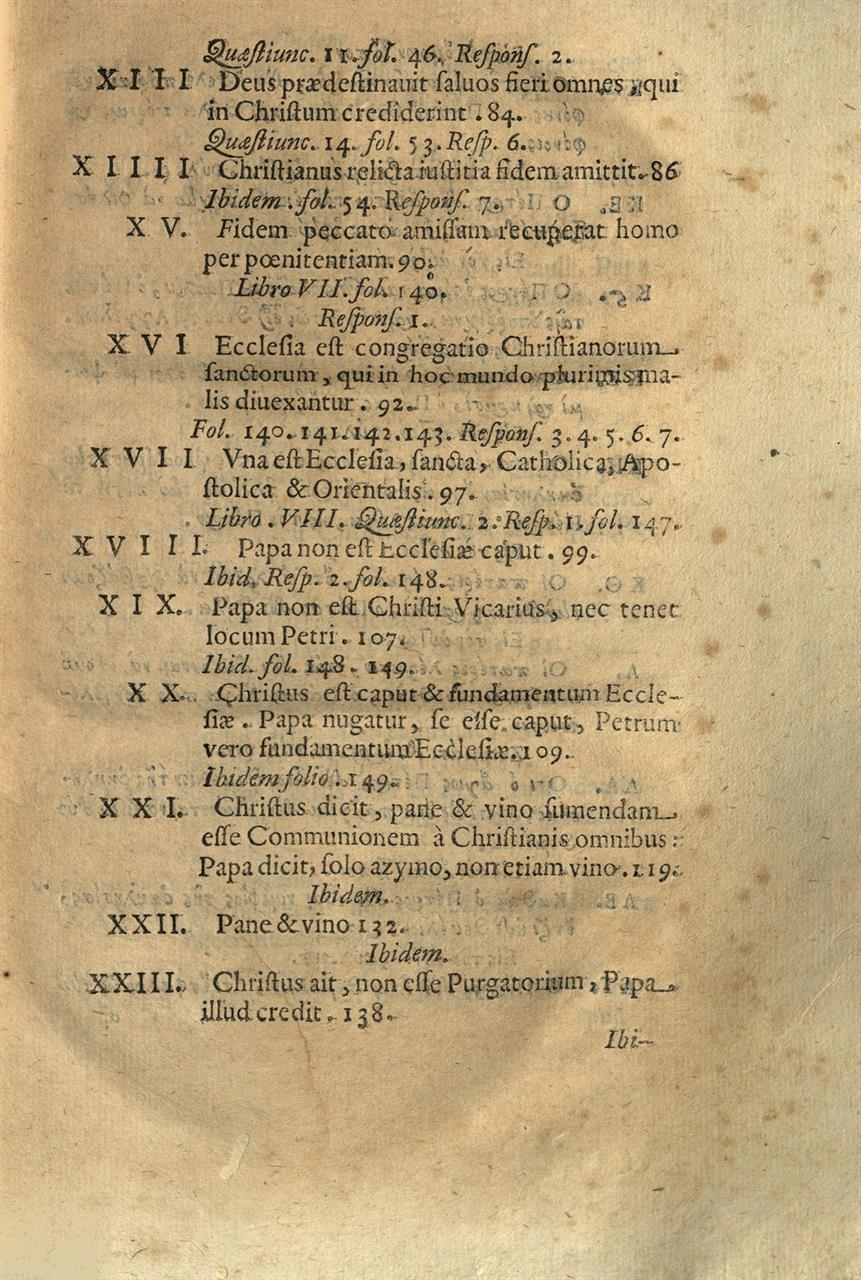 Quæſtiunc. 11. fol. 46. Reſponſ. 2.
XIII Deus prædeſtinauit ſaluos fieri omnes, qui
in Chriſtum crediderint. 84.
Quæſtiunc. 14. fol. 53. Reſp. 6.
XIIII Chriſtianus relicta iuſtitia fidem amittit. 86
Ibidem. fol. 54. Reſponſ. 7.
XV. Fidem peccato amiſſam recuperat homo
per pœnitentiam. 90.
Libro VII. fol. 140.
Reſponſ. 1.
XVI Eccleſia est congregatio Chriſtianorum
ſanctorum, qui in hoc mundo plurimis ma-
lis diuexantur. 92.
Fol. 140. 141. 142. 143. Reſponſ. 3. 4. 5. 6. 7.
XVII Vna eſt Eccleſia, ſancta, Catholica, Apo-
ſtolica & Orientalis. 97.
Libro. VIII. Quæſtiunc. 2. Reſp. 1. fol. 147.
XVIII. Papa non eſt Eccleſiæ caput. 99.
Ibid. Reſp. 2. fol. 148.
XIX. Papa non eſt Chriſti Vicarius, nec tenet
locum Petri. 107.
Ibid. fol. 148. 149.
XX. Chriſtus eſt caput & fundamentum Eccle-
ſiæ. Papa nugatur, ſe eſſe caput, Petrum
vero fundamentum Eccleſiæ. 109.
Ibidem folio. 149.
XXI. Chriſtus dicit, pane & vino ſumendam
eſſe Communionem à Chriſtianis omnibus:
Papa dicit, ſolo azymo, non etiam vino. 119.
Ibidem.
XXII. Pane & vino 132.
Ibidem.
XXIII. Chriſtus ait, non eſſe Purgatorium, Papa
illud credit. 138.
Ibi-